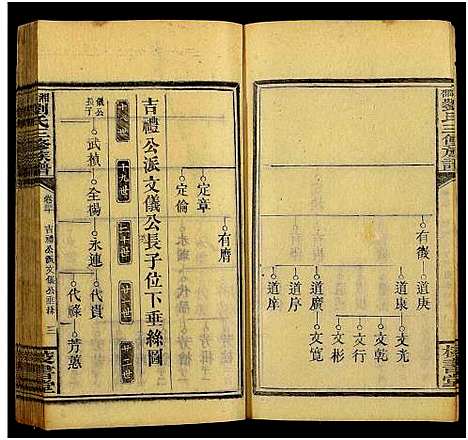 劉氏三修族譜
有徵
道庚
道東
道廣
道序
道庠
文光
文乾
文行
文彬
文寬
有膺
定章
定倫
吉禮公派文儀公長子位下垂絲圖
十八世
十九世
二十世
廿一世
廿二世
儀公長子
武楨
全楊
永連
代貴
代條
芳蕙
湘劉氏三修族譜
吉禮公派文儀公垂絲
三